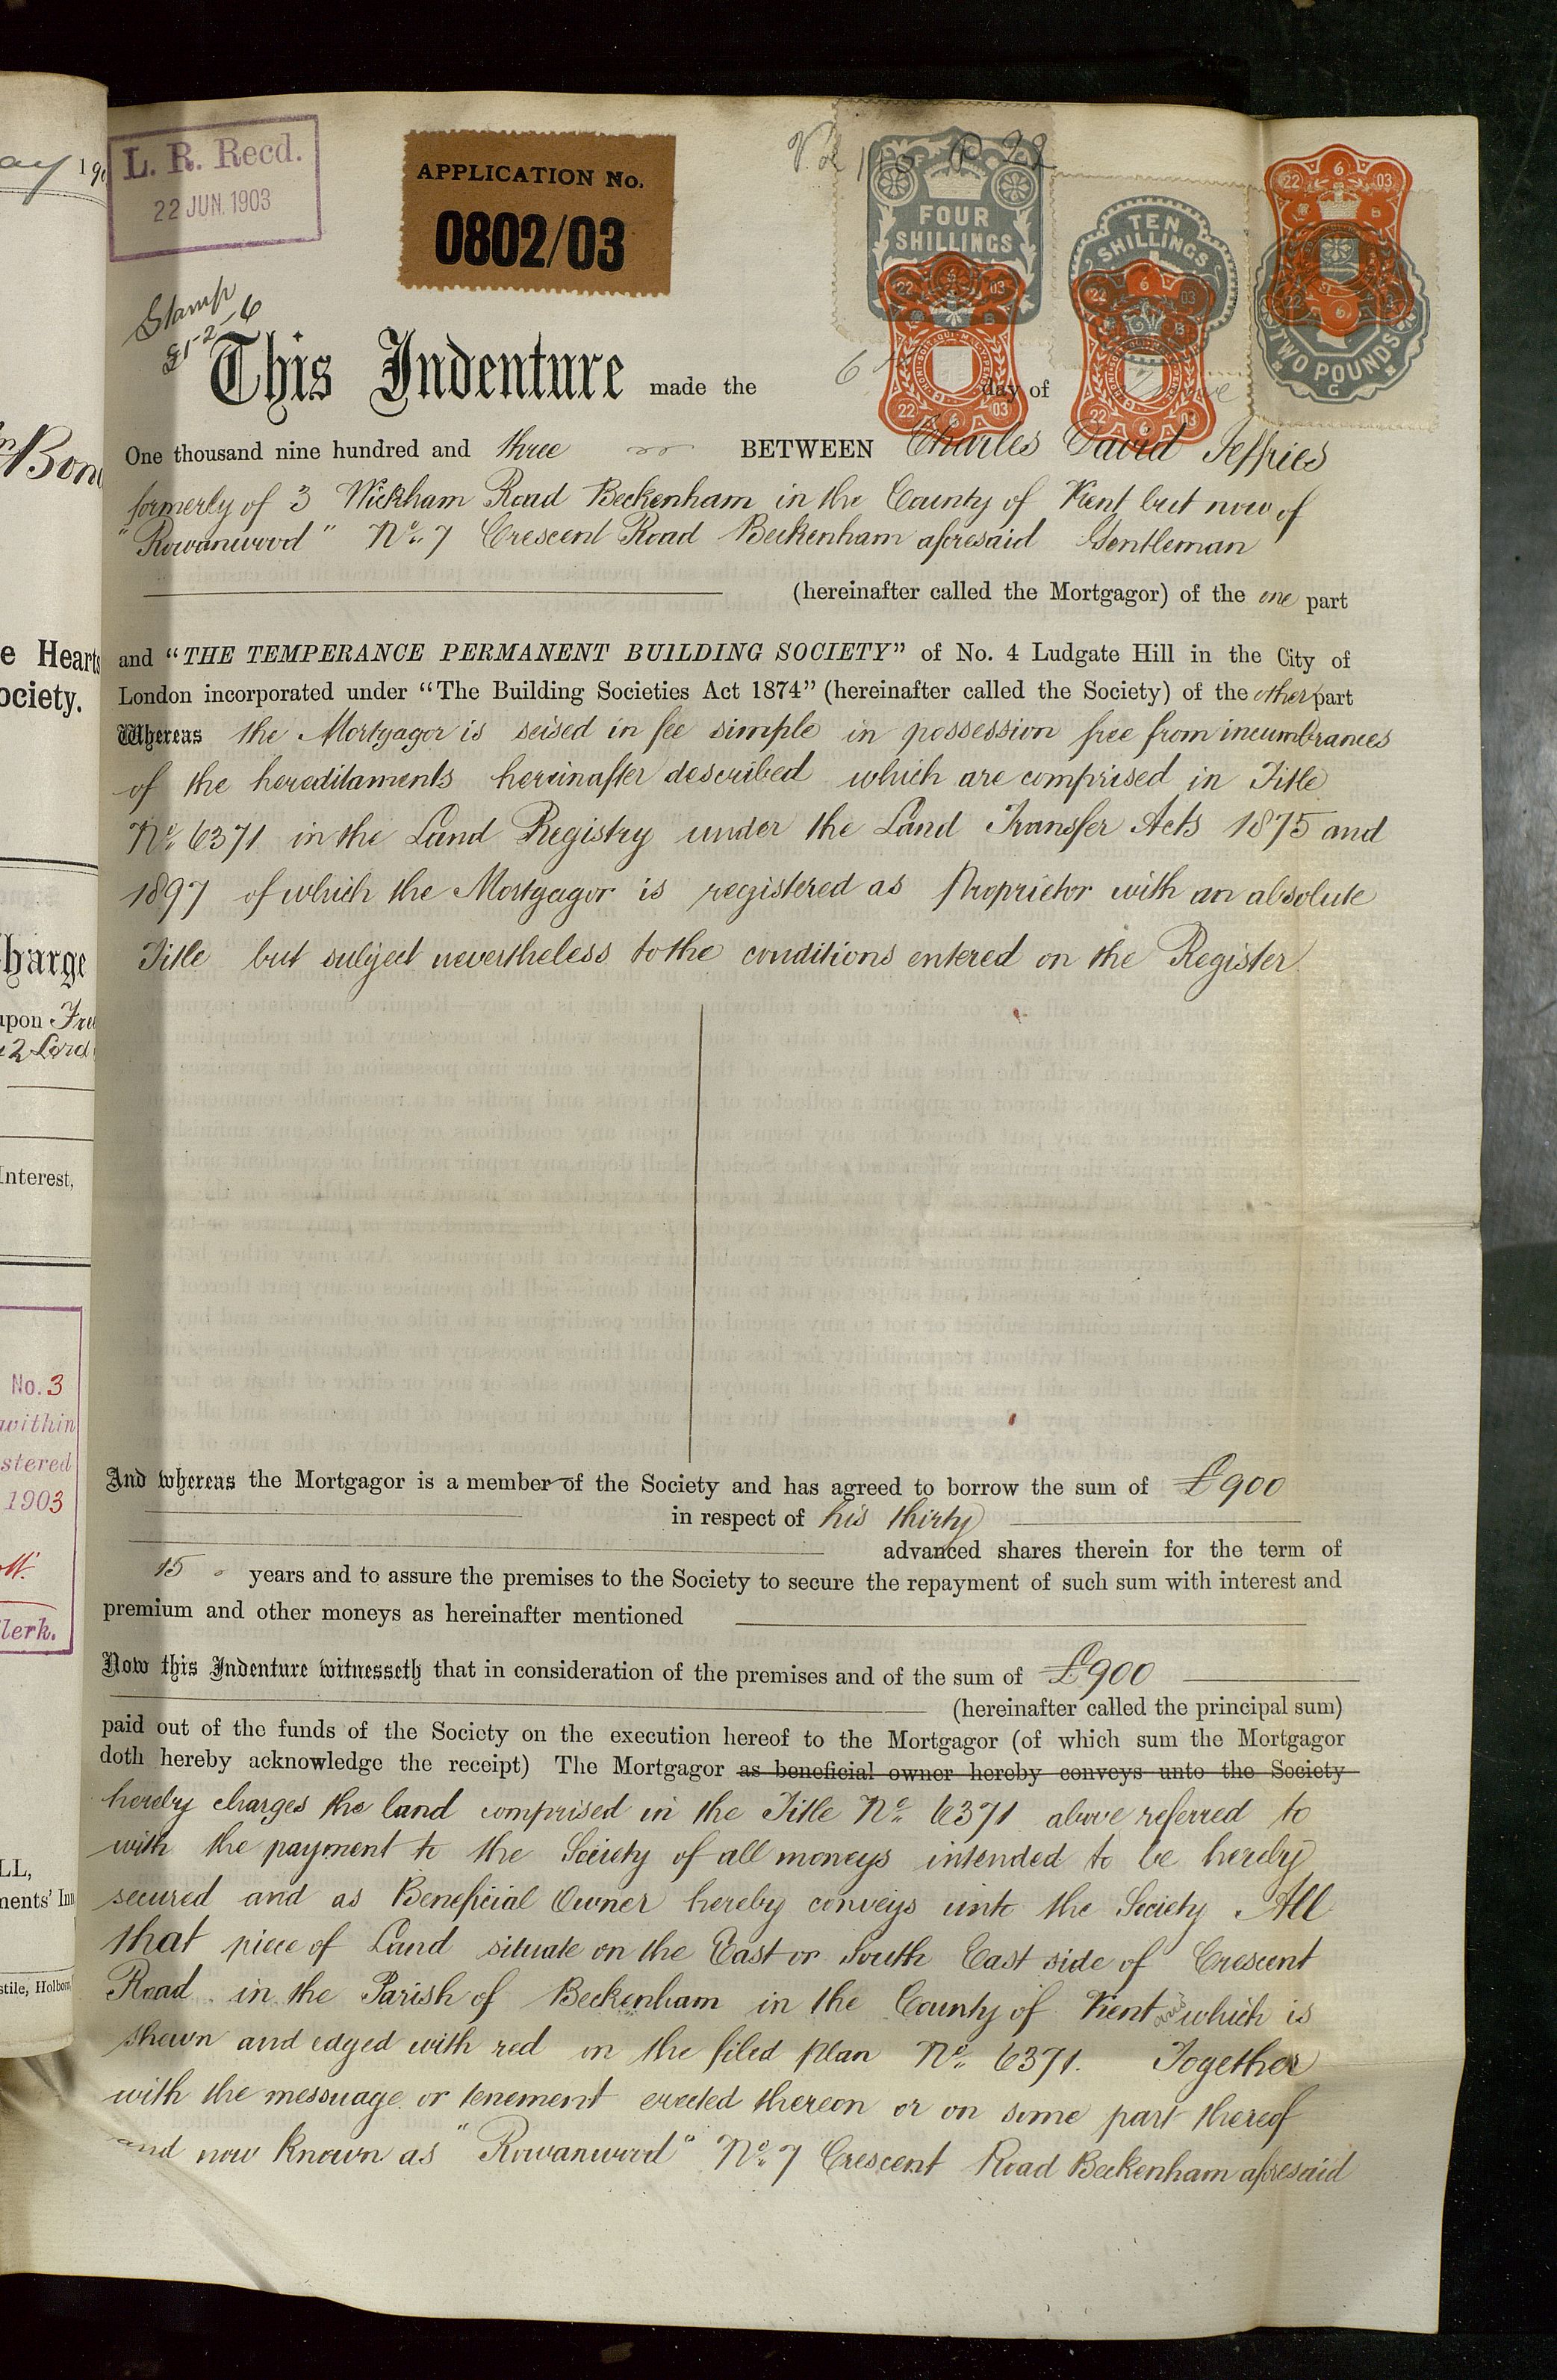 L. R. Recd.
22 JUN. 1903
APPLICATION No.
0802/03
FOUR
SHILLINGS
TEN
SHILLINGS
TWO POUNDS
22 6 03
Stamp
This Indenture made the 6th day of June
One thousand nine hundred and three BETWEEN Charles David Jeffries
formerly of 3 Wickham Road Beckenham in the County of Kent but now of
"Rowanwood" No. 7 Crescent Road Beckenham aforesaid Gentleman
(hereinafter called the Mortgagor) of the one part
and "THE TEMPERANCE PERMANENT BUILDING SOCIETY" of No. 4 Ludgate Hill in the City of
London incorporated under "The Building Societies Act 1874" (hereinafter called the Society) of the other part
Whereas the Mortgagor is seised in fee simple in possession free from incumbrances
of the hereditaments hereinafter described which are comprised in Title
No. 6371 in the Land Registry under the Land Transfer Acts 1875 and
1897 of which the Mortgagor is registered as Proprietor with an absolute
Title but subject nevertheless to the conditions entered on the Register
And whereas the Mortgagor is a member of the Society and has agreed to borrow the sum of £900
in respect of his thirty
advanced shares therein for the term of
15 years and to assure the premises to the Society to secure the repayment of such sum with interest and
premium and other moneys as hereinafter mentioned
Now this Indenture witnesseth that in consideration of the premises and of the sum of £900
(hereinafter called the principal sum)
paid out of the funds of the Society on the execution hereof to the Mortgagor (of which sum the Mortgagor
doth hereby acknowledge the receipt) The Mortgagor as beneficial owner hereby conveys unto the Society
hereby charges the land comprised in the Title No. 6371 above referred to
with the payment to the Society of all moneys intended to be hereby
secured and as Beneficial Owner hereby conveys unto the Society All
that piece of Land situate on the East or South East side of Crescent
Road in the Parish of Beckenham in the County of Kent and which is
shewn and edged with red on the filed plan No. 6371. Together
with the messuage or tenement erected thereon or on some part thereof
and now known as "Rowanwood" No. 7 Crescent Road Beckenham aforesaid
e Hearts
ociety.
harge
upon
Interest,
No. 3
within
stered
1903
lerk.